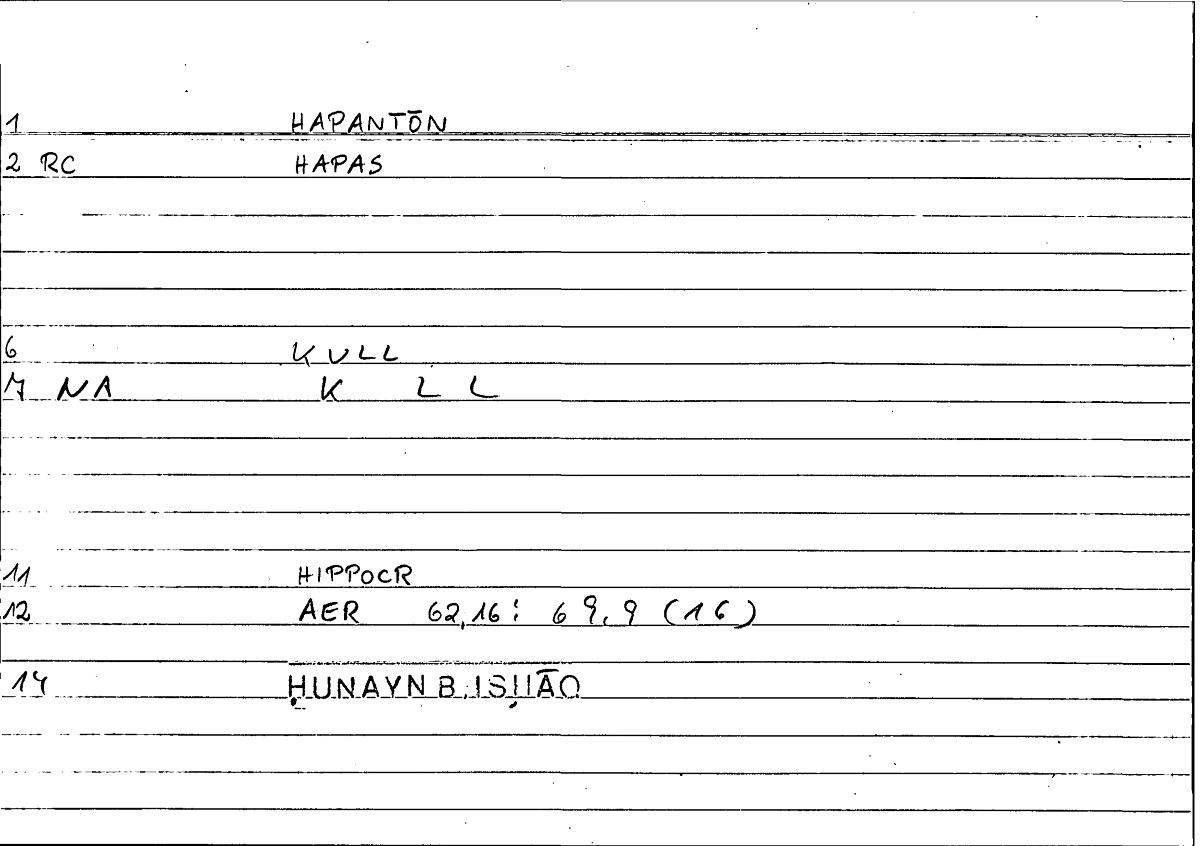 1 HAPANTŌN
2 RC HAPAS
6 KULL
7 NA K L L
11 HIPPOCR
12 AER 62,16: 69,9 (16)
14 ḤUNAYN B. ISḤĀQ